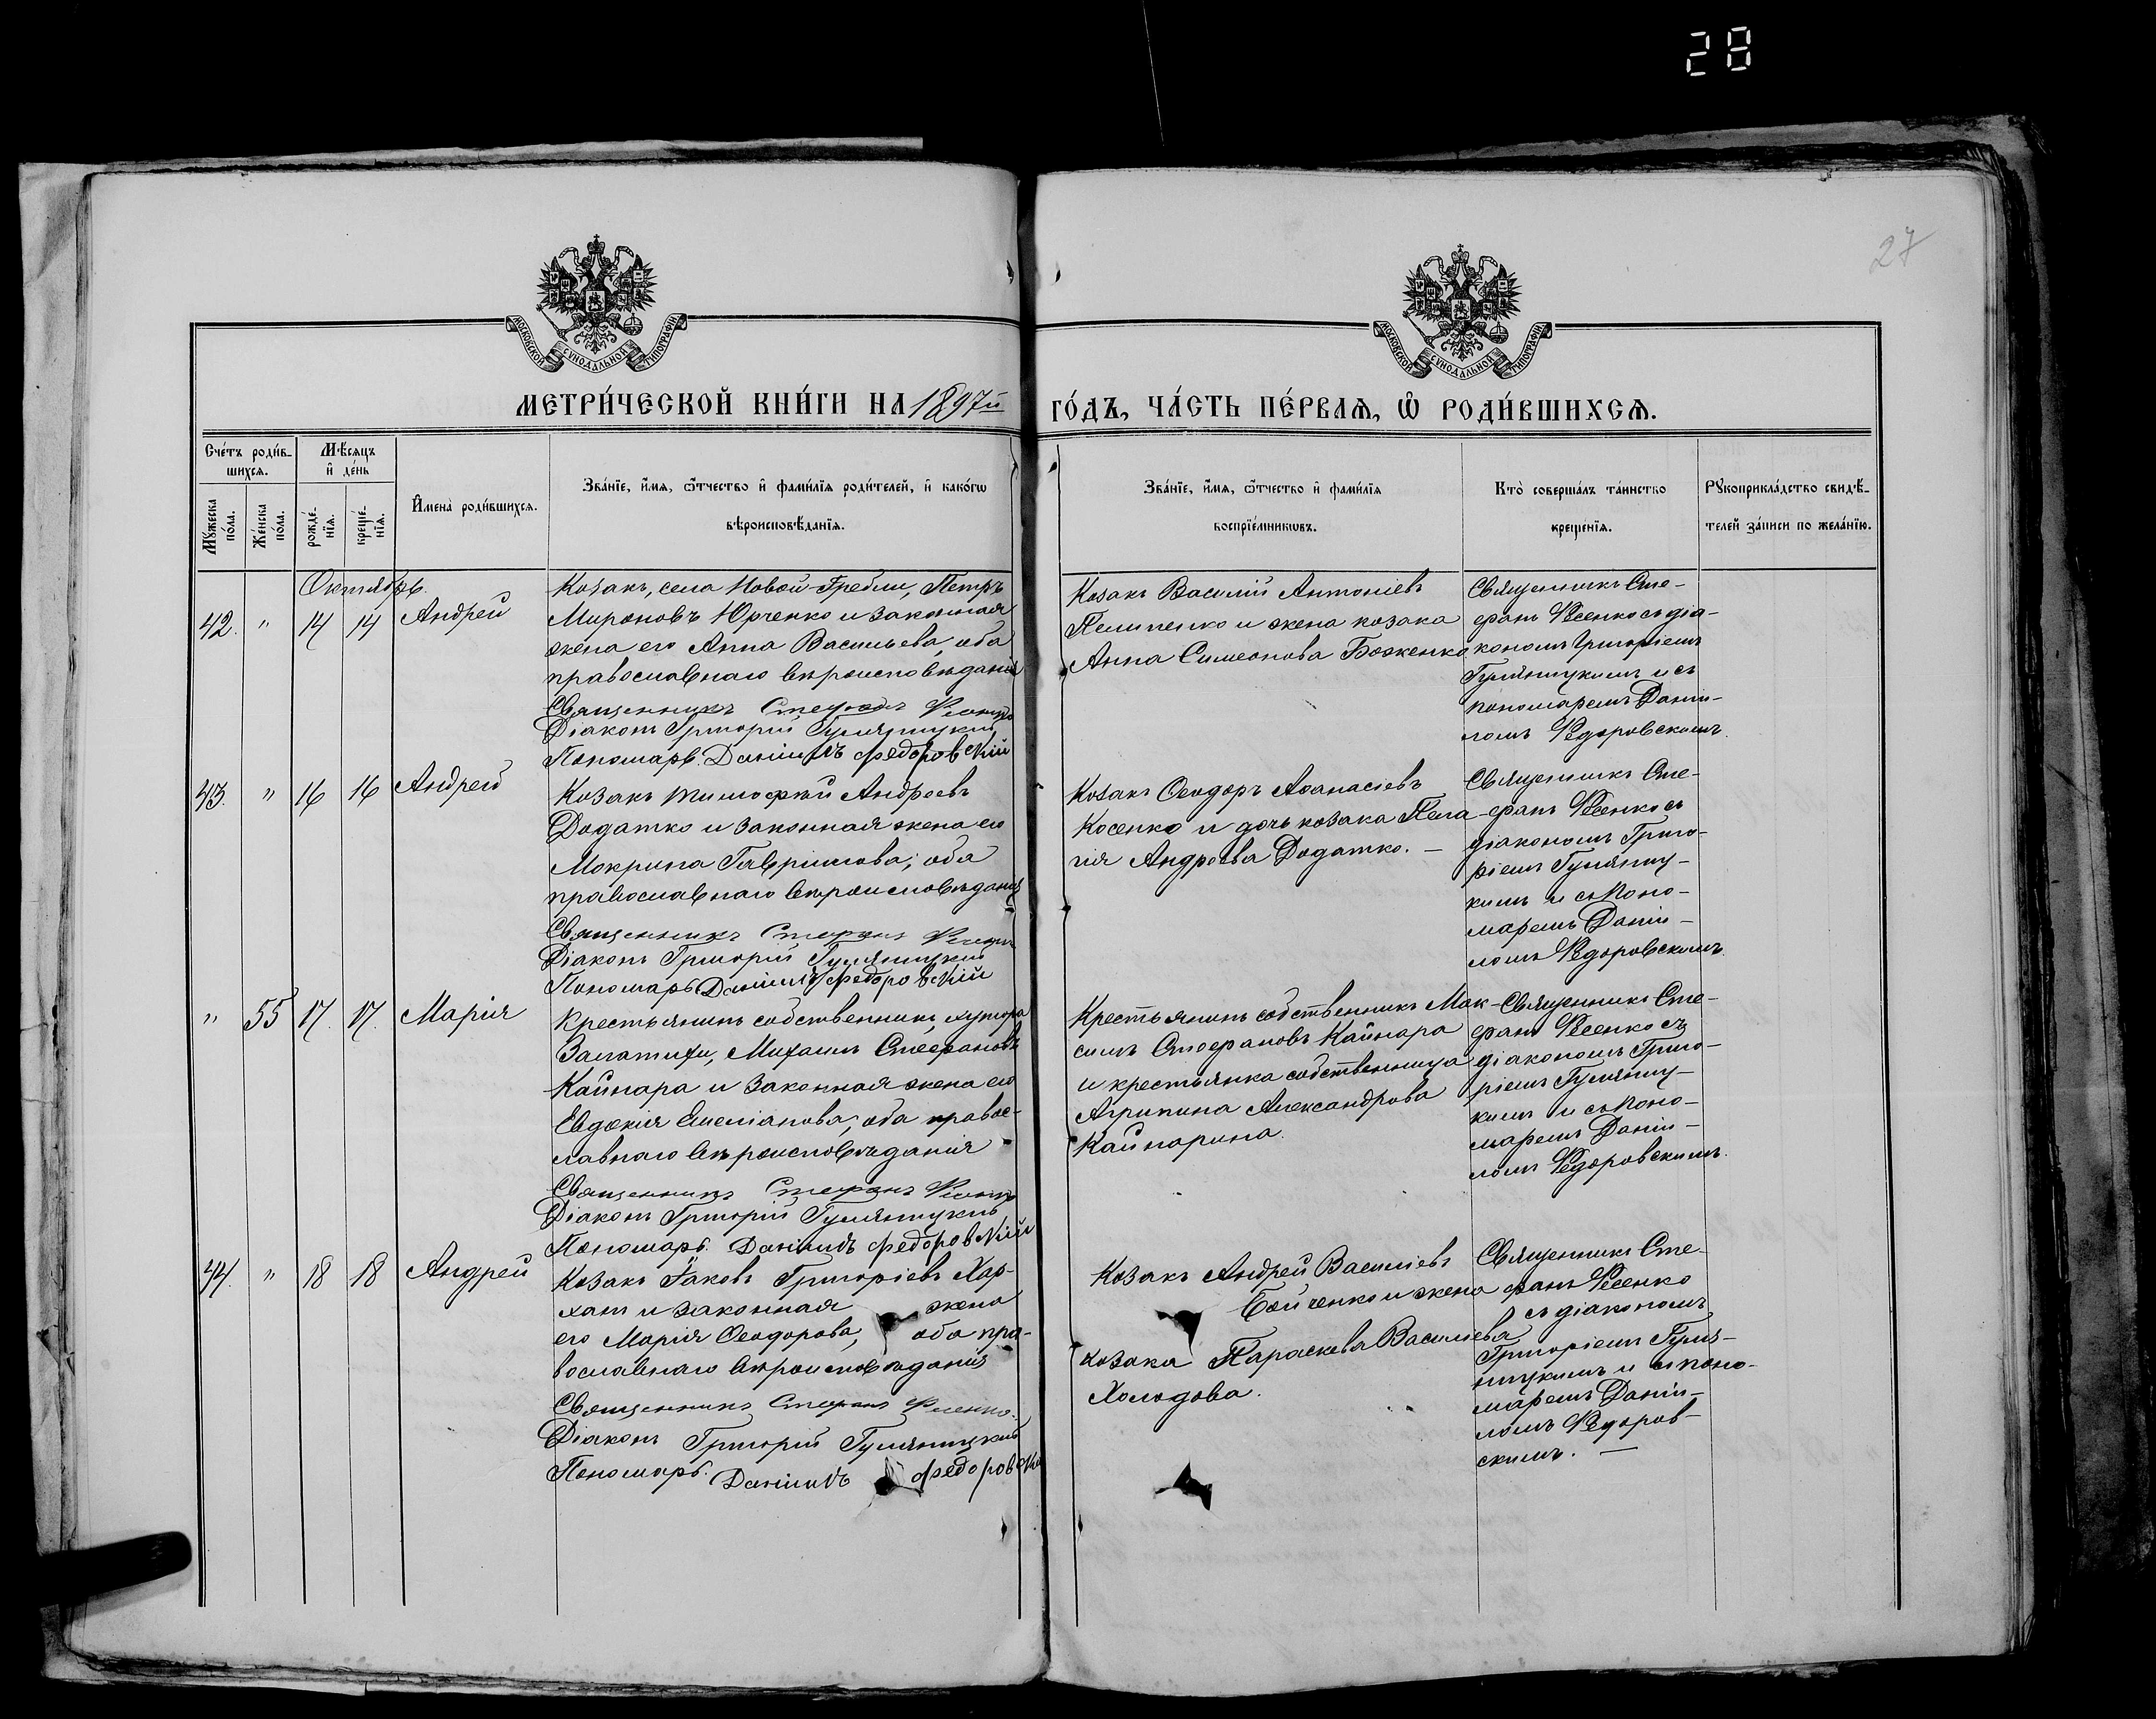 28
27
МОСКОВСКОЙ СУНОДАЛЬНОЙ ТИПОГРАФІИ
МОСКОВСКОЙ СУНОДАЛЬНОЙ ТИПОГРАФІИ
МЕТРИ́ЧЕСКОЙ КНИ́ГИ НА 1897й
ГО́ДЪ, ЧА́СТЬ ПЕ́РВАѦ, Ѡ҆ РОДИ́ВШИХСѦ.
Сче́тъ роди́в-
шихсѧ.
Мꙋжеска по́ла.
Же́нска по́ла.
Мѣ́сѧцъ
и҆ де́нь
рожде́-
нїѧ.
креще́-
нїѧ.
И҆мена̀ роди́вшихсѧ.
Зва́нїе, и҆́мѧ, ѻ҆́тчество и҆ фами́лїѧ роди́телей, и҆ како́гѡ
вѣроисповѣ́данїѧ.
Зва́нїе, и҆́мѧ, ѻ҆́тчество и҆ фами́лїѧ
воспрїе́мникѡвъ.
Кто̀ соверша́лъ та́инство
креще́нїѧ.
Рꙋкоприкла́дство свидѣ́-
телей за́писи по жела́нїю.
Октябрь.
42. " 14 14 Андрей
Козакъ, села Новой-Гребли, Петръ
Мироновъ Юрченко и законная
жена его Анна Васильева, оба
православнаго вѣроисповѣданія
Священникъ Стефанъ Ѳесенко
Діаконъ Григорій Гуляницкій
Пономарь Даніилъ Федоровскій
Козакъ Василій Антоніевъ
Пелипенко и жена козака
Анна Симеонова Боженко
Священникъ Сте-
фанъ Ѳесенко съ діа-
кономъ Григоріемъ
Гуляницкимъ и съ
пономаремъ Даніи-
ломъ Ѳедоровскимъ.
43. " 16 16 Андрей
Козакъ Тимофѣй Андреевъ
Додатко и законная жена его
Мокрина Гавріилова; оба
православнаго вѣроисповѣданія
Священникъ Стефанъ Ѳесенко
Діаконъ Григорій Гуляницкій
Пономарь Даніилъ Федоровскій
Козакъ Ѳеодоръ Аѳанасіевъ
Косенко и дочь козака Пела-
гія Андреева Додатко. —
Священникъ Сте-
фанъ Ѳесенко съ
діакономъ Григо-
ріемъ Гуляниц-
кимъ и съ поно-
маремъ Даніи-
ломъ Ѳедоровскимъ.
" 55 17. 17. Марія
Крестьянинъ собственникъ, хутора
Михаилъ Стефановъ
Кайнара и законная жена его
Евдокія Емеліанова, оба правос-
лавнаго вѣроисповѣданія
Священникъ Стефанъ Ѳесенко
Діаконъ Григорій Гуляницкій
Пономарь. Даніилъ Федоровскій
Крестьянинъ собственникъ Мак-
симъ Стефановъ Кайнара
и крестьянка собственница
Агрипина Александрова
Кайнарина.
Священникъ Сте-
фанъ Ѳесенко съ
діакономъ Григо-
ріемъ Гуляниц-
кимъ и съ поно-
маремъ Даніи-
ломъ Ѳедоровскимъ.
44. " 18 18 Андрей
Козакъ Іаковъ Григоріевъ Хар-
и законная жена
его Марія Ѳеодорова, оба пра-
вославнаго вѣроисповѣданія
Священникъ Стефанъ Ѳесенко.
Діаконъ Григорій Гуляницкій
Пономарь. Даніилъ Федоровскій
Козакъ Андрей Василіевъ
Бойченко и жена
козака Параскева Василіева
Холодова.
Священникъ Сте-
фанъ Ѳесенко
съ діакономъ
Григоріемъ Гуля-
ницкимъ и съ поно-
маремъ Даніи-
ломъ Ѳедоров-
скимъ. —